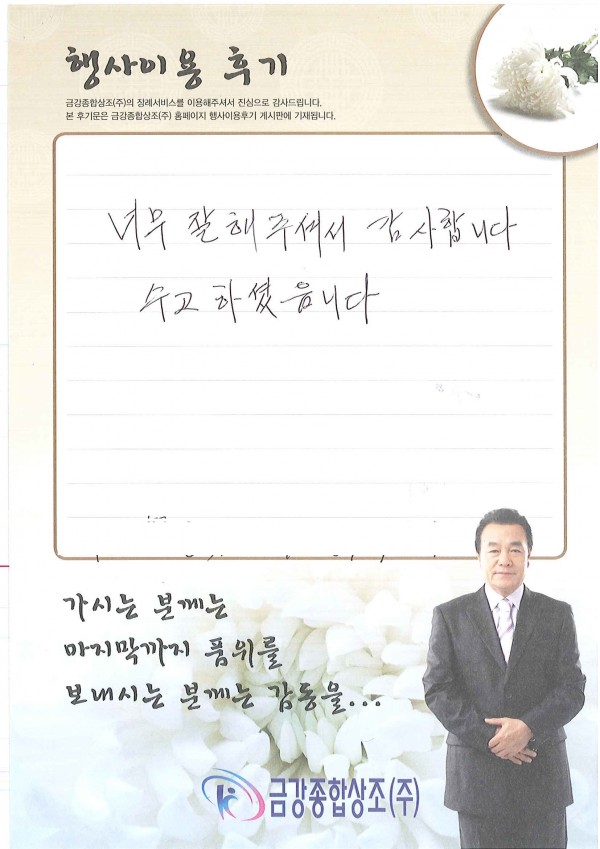 행사이용 후기
금강종합상조(주)의 장례서비스를 이용해주셔서 진심으로 감사드립니다.
본 후기문은 금강종합상조(주) 홈페이지 행사이용후기 게시판에 기재됩니다.
너무 잘해주셔서 감사합니다
수고하셨읍니다
가시는 분께는
마지막까지 품위를
보내시는 분께는 감동을...
금강종합상조(주)